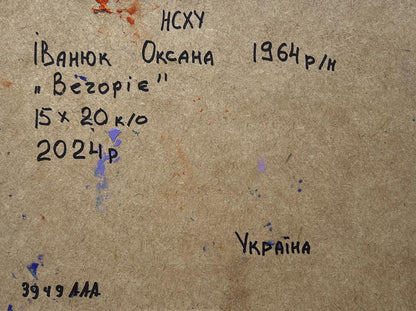 НСХУ
Іванюк Оксана 1964 р/н
„Вечоріє"
15 × 20 к/о
2024р
Україна
3949 ААА